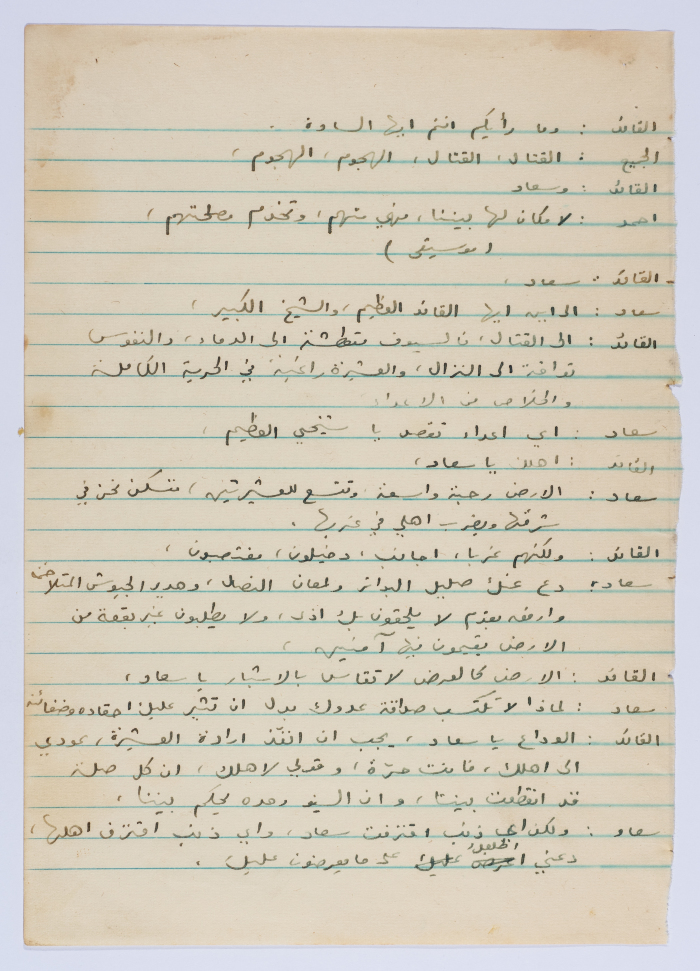 القائد : وما رأيكم انتم ايها السادة .
الجميع : القتال ، القتال ، الهجوم ، الهجوم ،
القائد : وسعاد
احمد : لا مكان لها بيننا ، فهي منهم ، وتخدم مصلحتهم ،
( موسيقى )
القائد : سعاد ،
سعاد : الى اين ايها القائد العظيم ، والشيخ الكبير ،
القائد : الى القتال ، فالسيوف متعطشة الى الدماء ، والنفوس
تواقة الى النزال ، والعشيرة راغبة في الحرية الكاملة
والخلاص من الاعداء
سعاد : اي اعداء تقصد يا شيخي العظيم ،
القائد : اهلك يا سعاد ،
سعاد : الارض رحبة واسعة وتتسع للعشيرتين ، فنسكن نحن في
شرقها ويضرب اهلي في غربها .
القائد : ولكنهم غرباء ، اجانب ، دخيلون ، مغتصبون ،
سعاد : دع عنك صليل البواتر ولمعان النصال ، وهدير الجيوش المتلاحمة
وارفق بقوم لا يلحقون بك اذى ، ولا يطلبون غير بقعة من
الارض يقيمون فيها آمنين ،
القائد : الارض كالعرض لا تقاس بالاشبار يا سعاد ،
سعاد : لماذا لا تكتسب صداقة عدوك بدل ان تثير عليك احقاده وضغائنه
القائد : الوداع يا سعاد ، يجب ان انفّذ ارادة العشيرة ، عودي
الى اهلك ، فانت حرّة ، وقولي لاهلك ، ان كل صلة
قد انقطعت بيننا ، وان السيف وحده يحكم بيننا ،
سعاد : ولكن اي ذنب اقترفت سعاد ، واي ذنب اقترف اهلها ،
دعني اطلعك على ما يعرضون عليك .